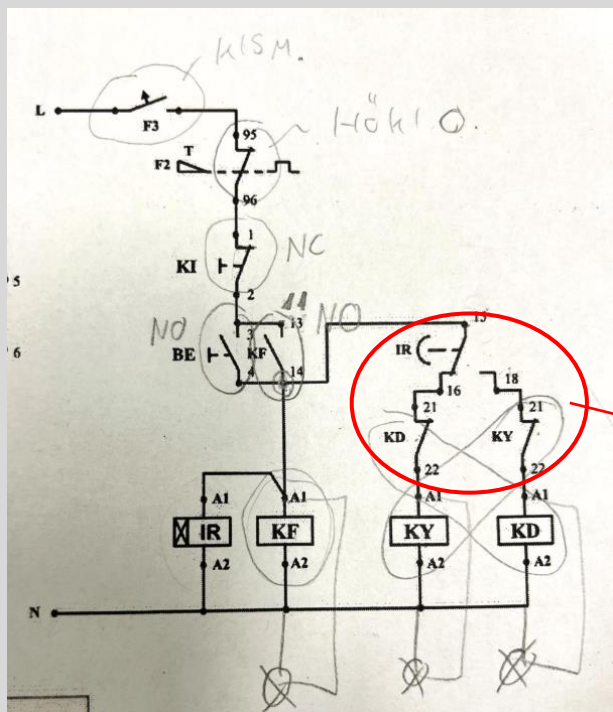 KISM.
L
F3
95
HŐKIO.
T
F2
96
1
KI
NC
2
5
11
NO
3
13
NO
BE
KF
4
14
6
15
IR
16
18
21
21
KD
KY
22
22
A1
A1
A1
A1
IR
KF
KY
KD
A2
A2
A2
A2
N